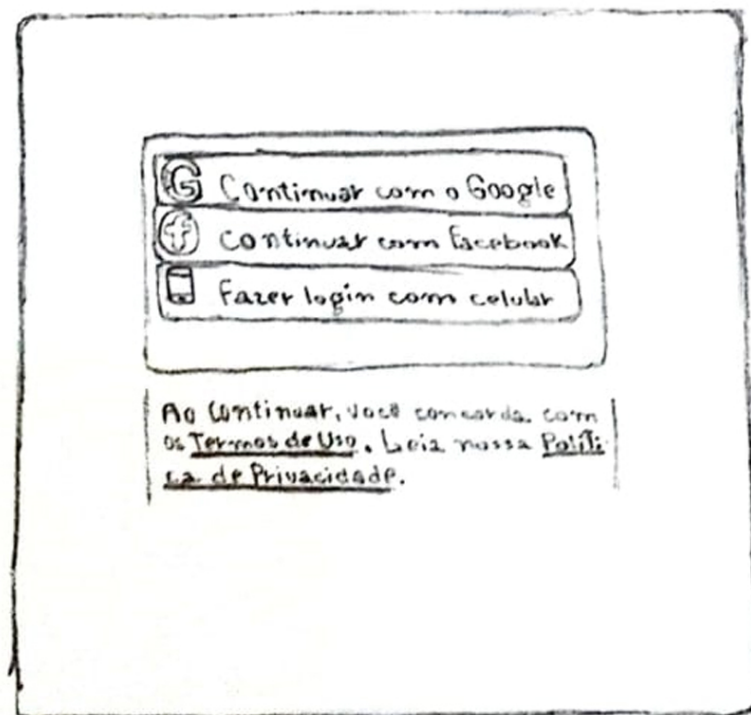 G Continuar com o Google
f Continuar com Facebook
Fazer login com celular
Ao Continuar, você concorda com
os Termos de Uso. Leia nossa Políti-
ca de Privacidade.